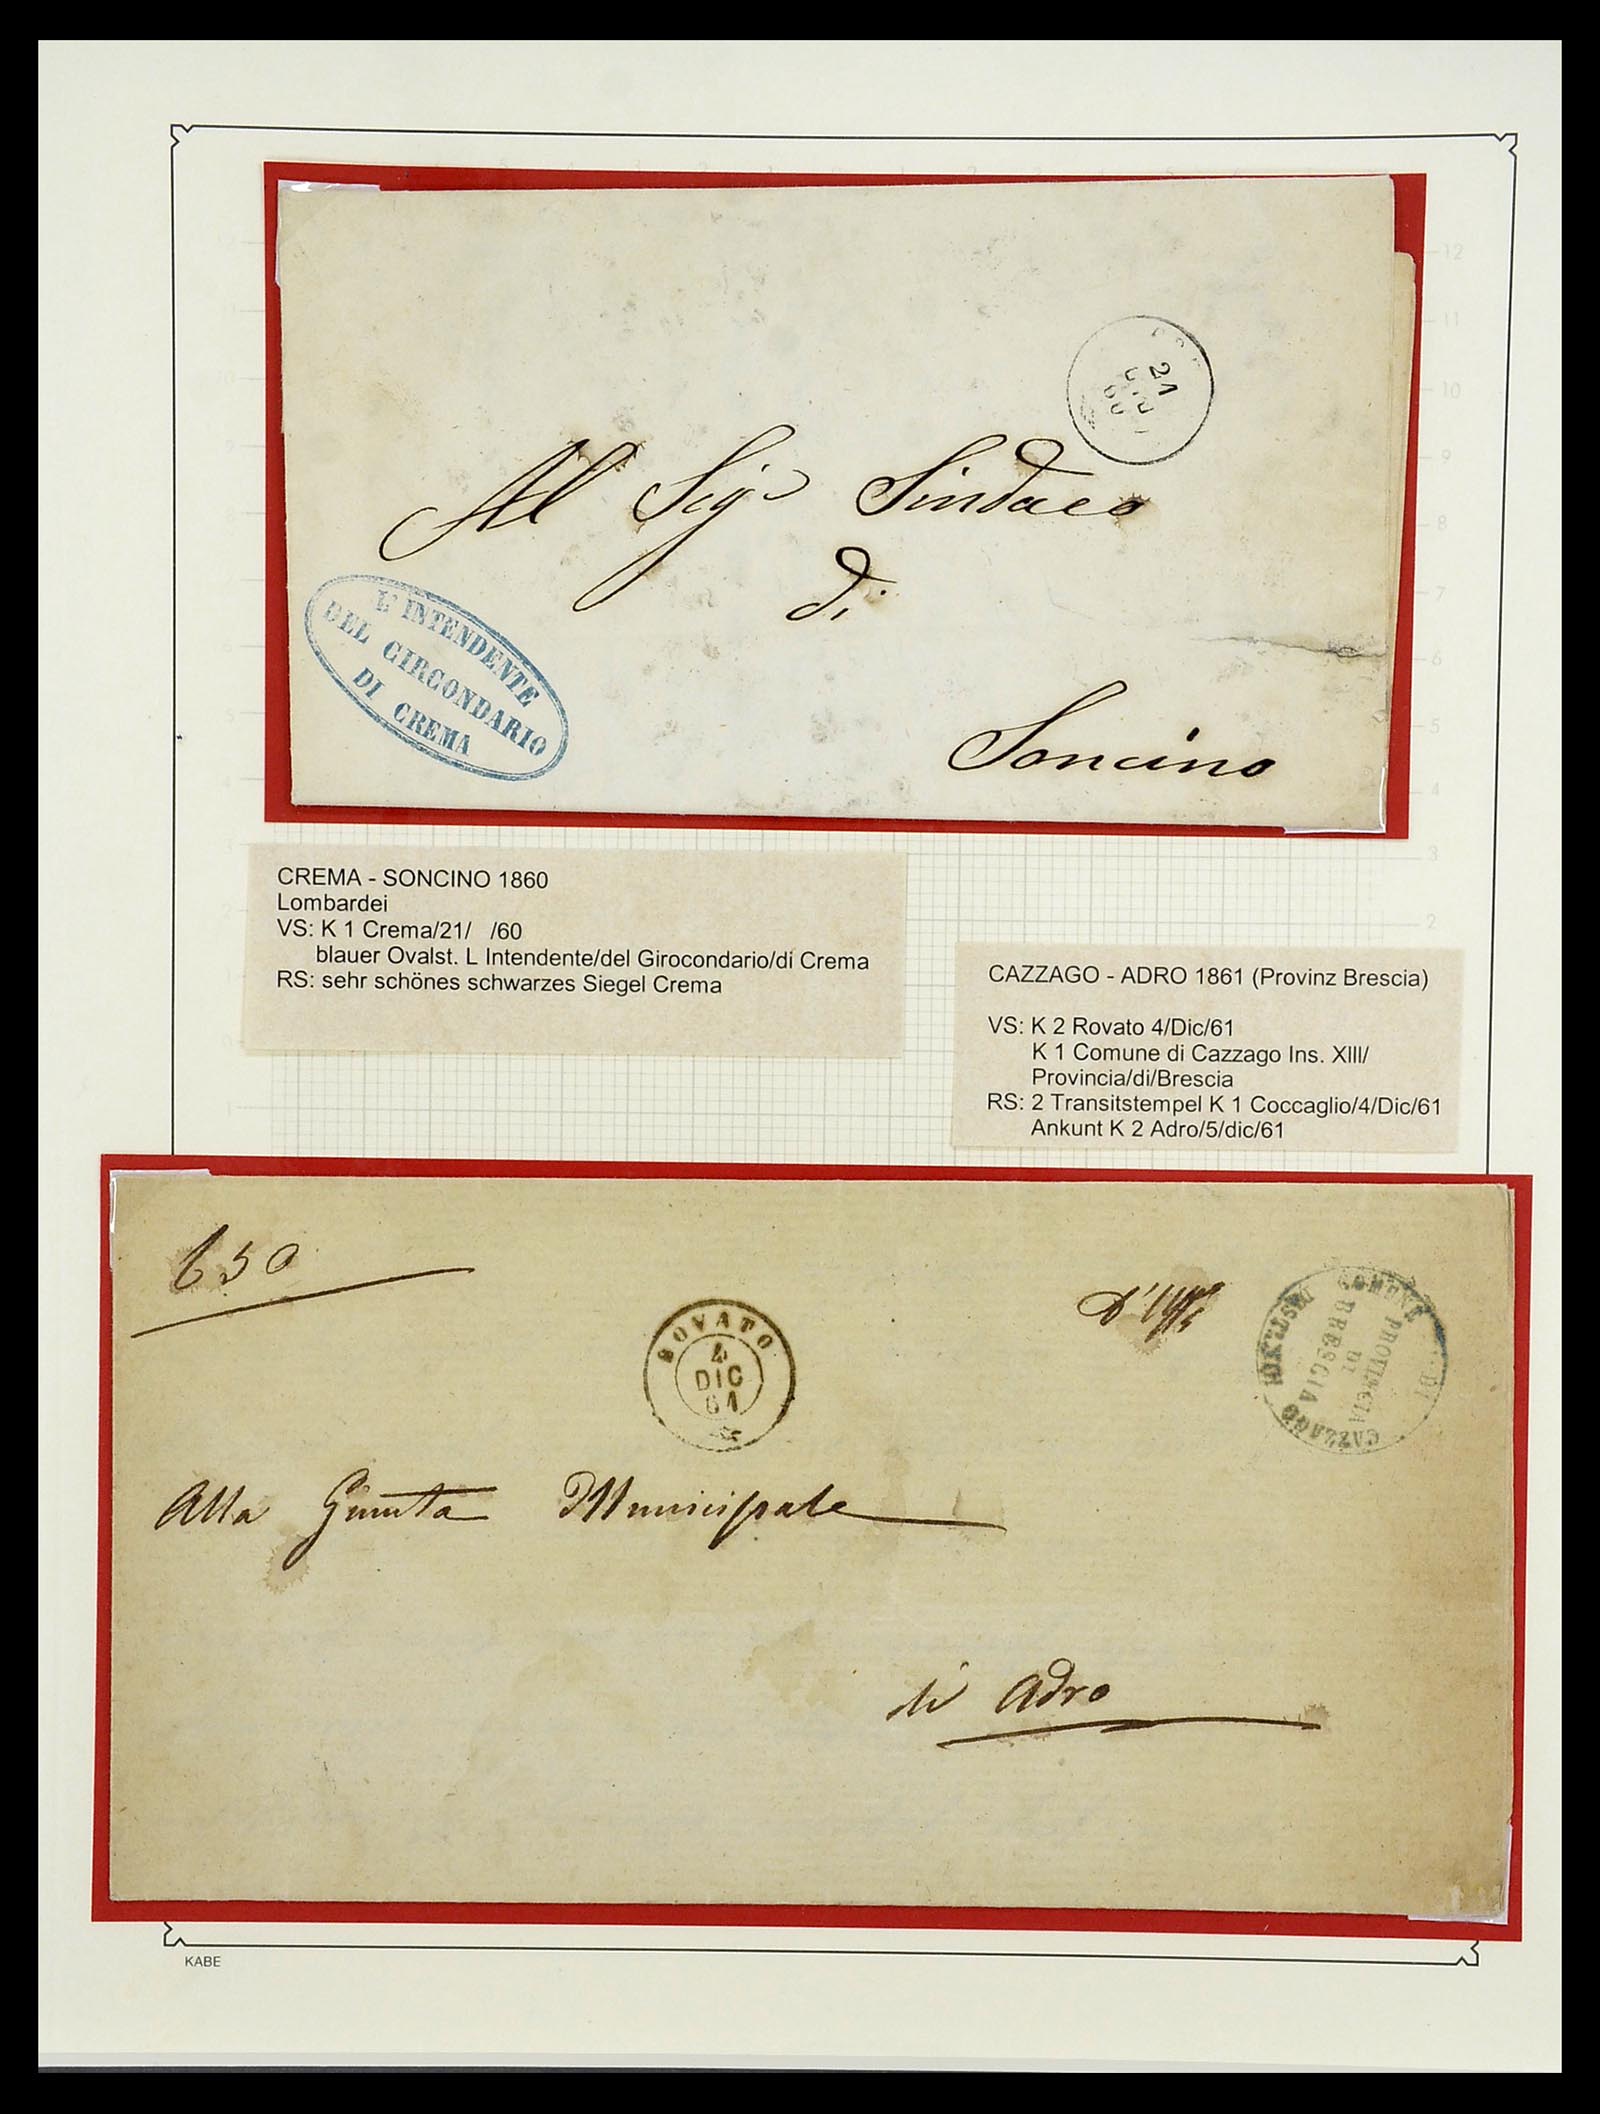 21
60
Al Sigr Sindaco
di
Soncino
L'INTENDENTE
DEL CIRCONDARIO
DI CREMA
CREMA - SONCINO 1860
Lombardei
VS: K 1 Crema/21/ /60
blauer Ovalst. L Intendente/del Girocondario/di Crema
RS: sehr schönes schwarzes Siegel Crema
CAZZAGO - ADRO 1861 (Provinz Brescia)
VS: K 2 Rovato 4/Dic/61
K 1 Comune di Cazzago Ins. XIII/
Provincia/di/Brescia
RS: 2 Transitstempel K 1 Coccaglio/4/Dic/61
Ankunt K 2 Adro/5/dic/61
650
D'Uffo
ROVATO
4
DIC
61
COMUNE DI CAZZAGO
PROVINCIA
DI
BRESCIA
Alla Giunta Municipale
di Adro
KABE
12
11
10
9
8
7
6
5
4
3
2